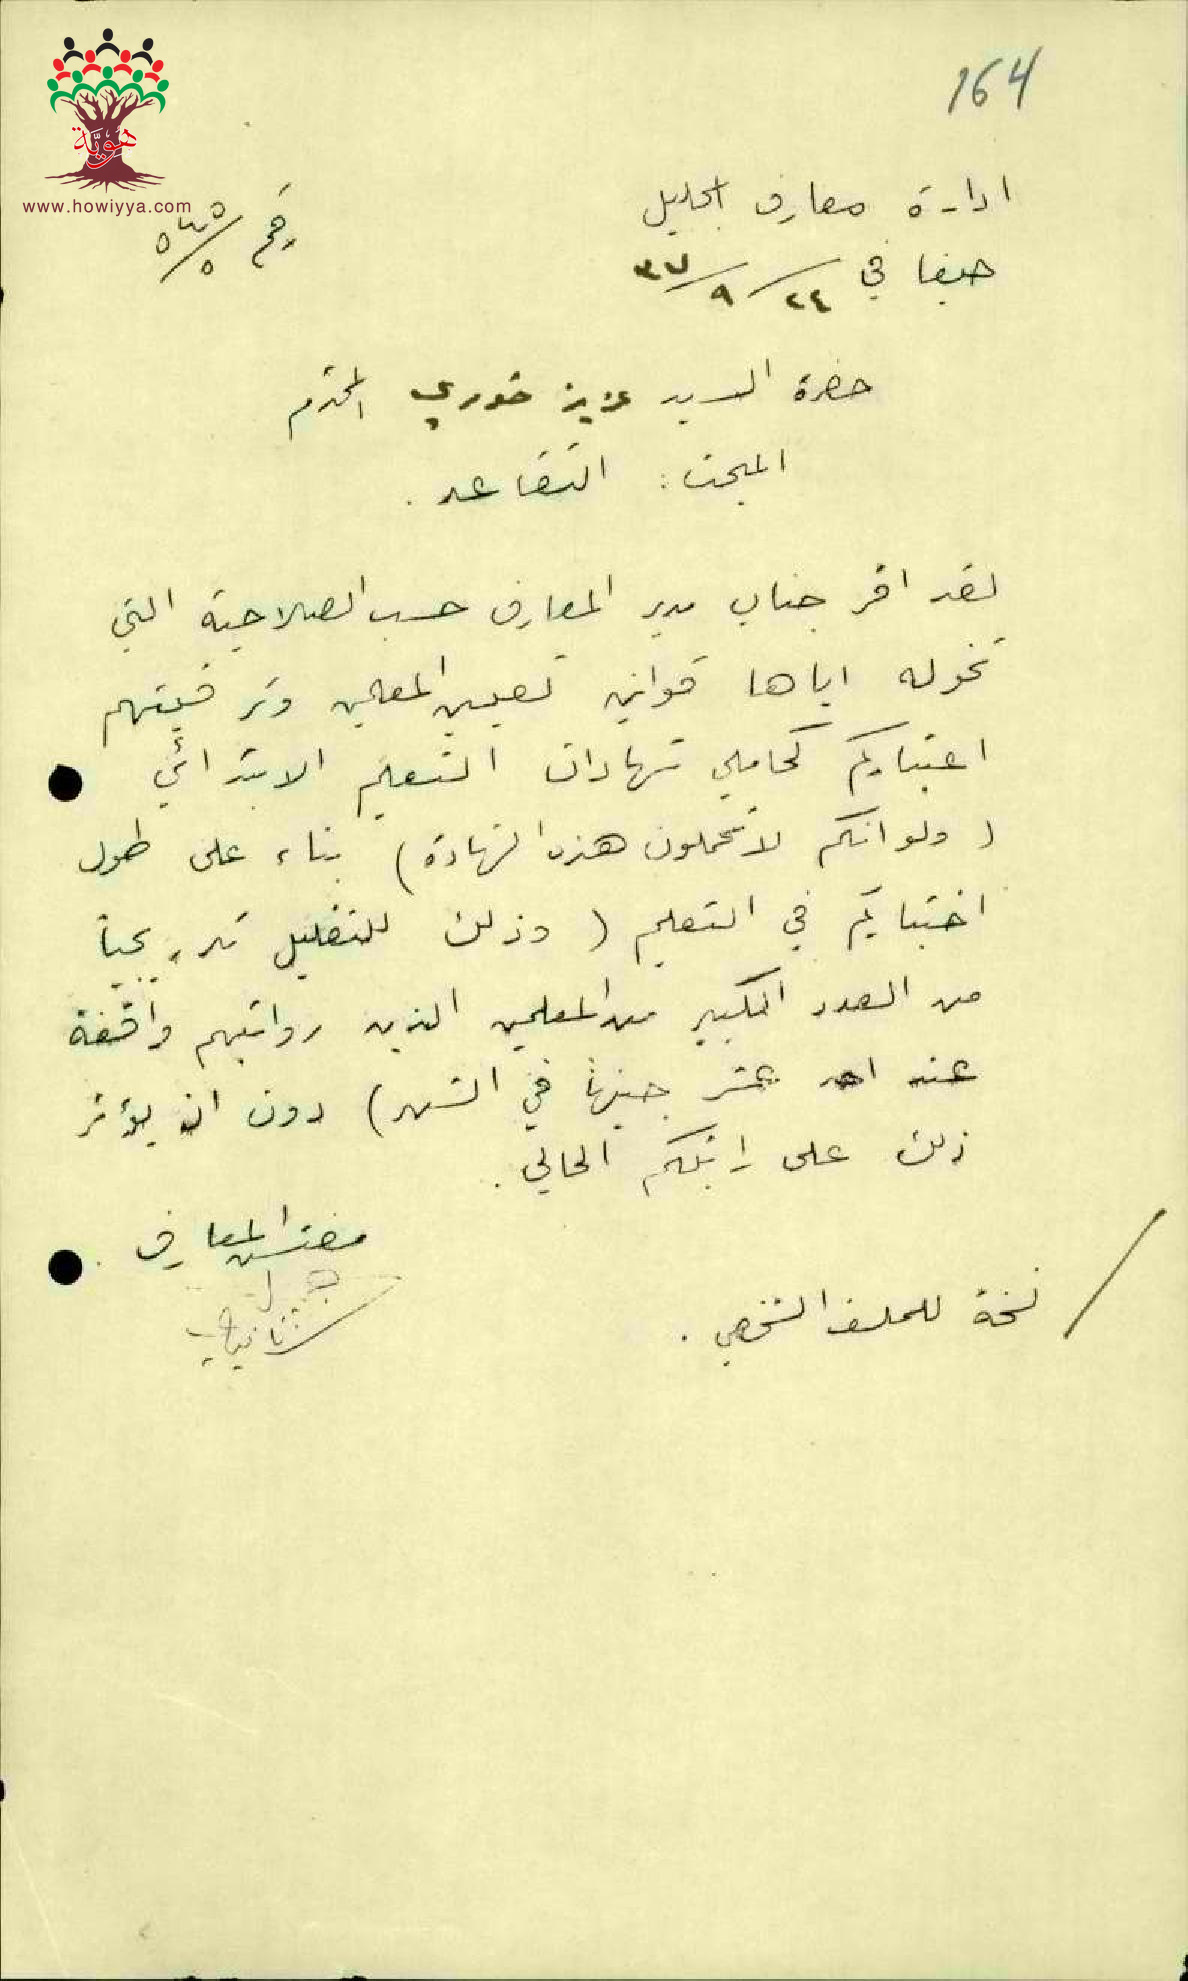 164
هوية
www.howiyya.com
ادارة معارف الجليل
رقم
حيفا في ٢٤/٩/٣٧
حضرة السيد عزيز خوري المحترم
المبحث: التقاعد.
لقد اقر جناب مدير المعارف حسب الصلاحية التي
تخوله اياها قوانين تعيين المعلمين وترقيتهم
اعتباركم كحاملي شهادات التعليم الابتدائي
(ولو انكم لا تحملون هذه الشهادة) بناء على طول
اختباركم في التعليم (وذلك للتقليل تدريجياً
من العدد الكبير من المعلمين الذين رواتبهم واقفة
عند احد عشر جنيهاً في الشهر) دون ان يؤثر
ذلك على راتبكم الحالي.
مفتش المعارف.
نسخة للملف الشخصي.